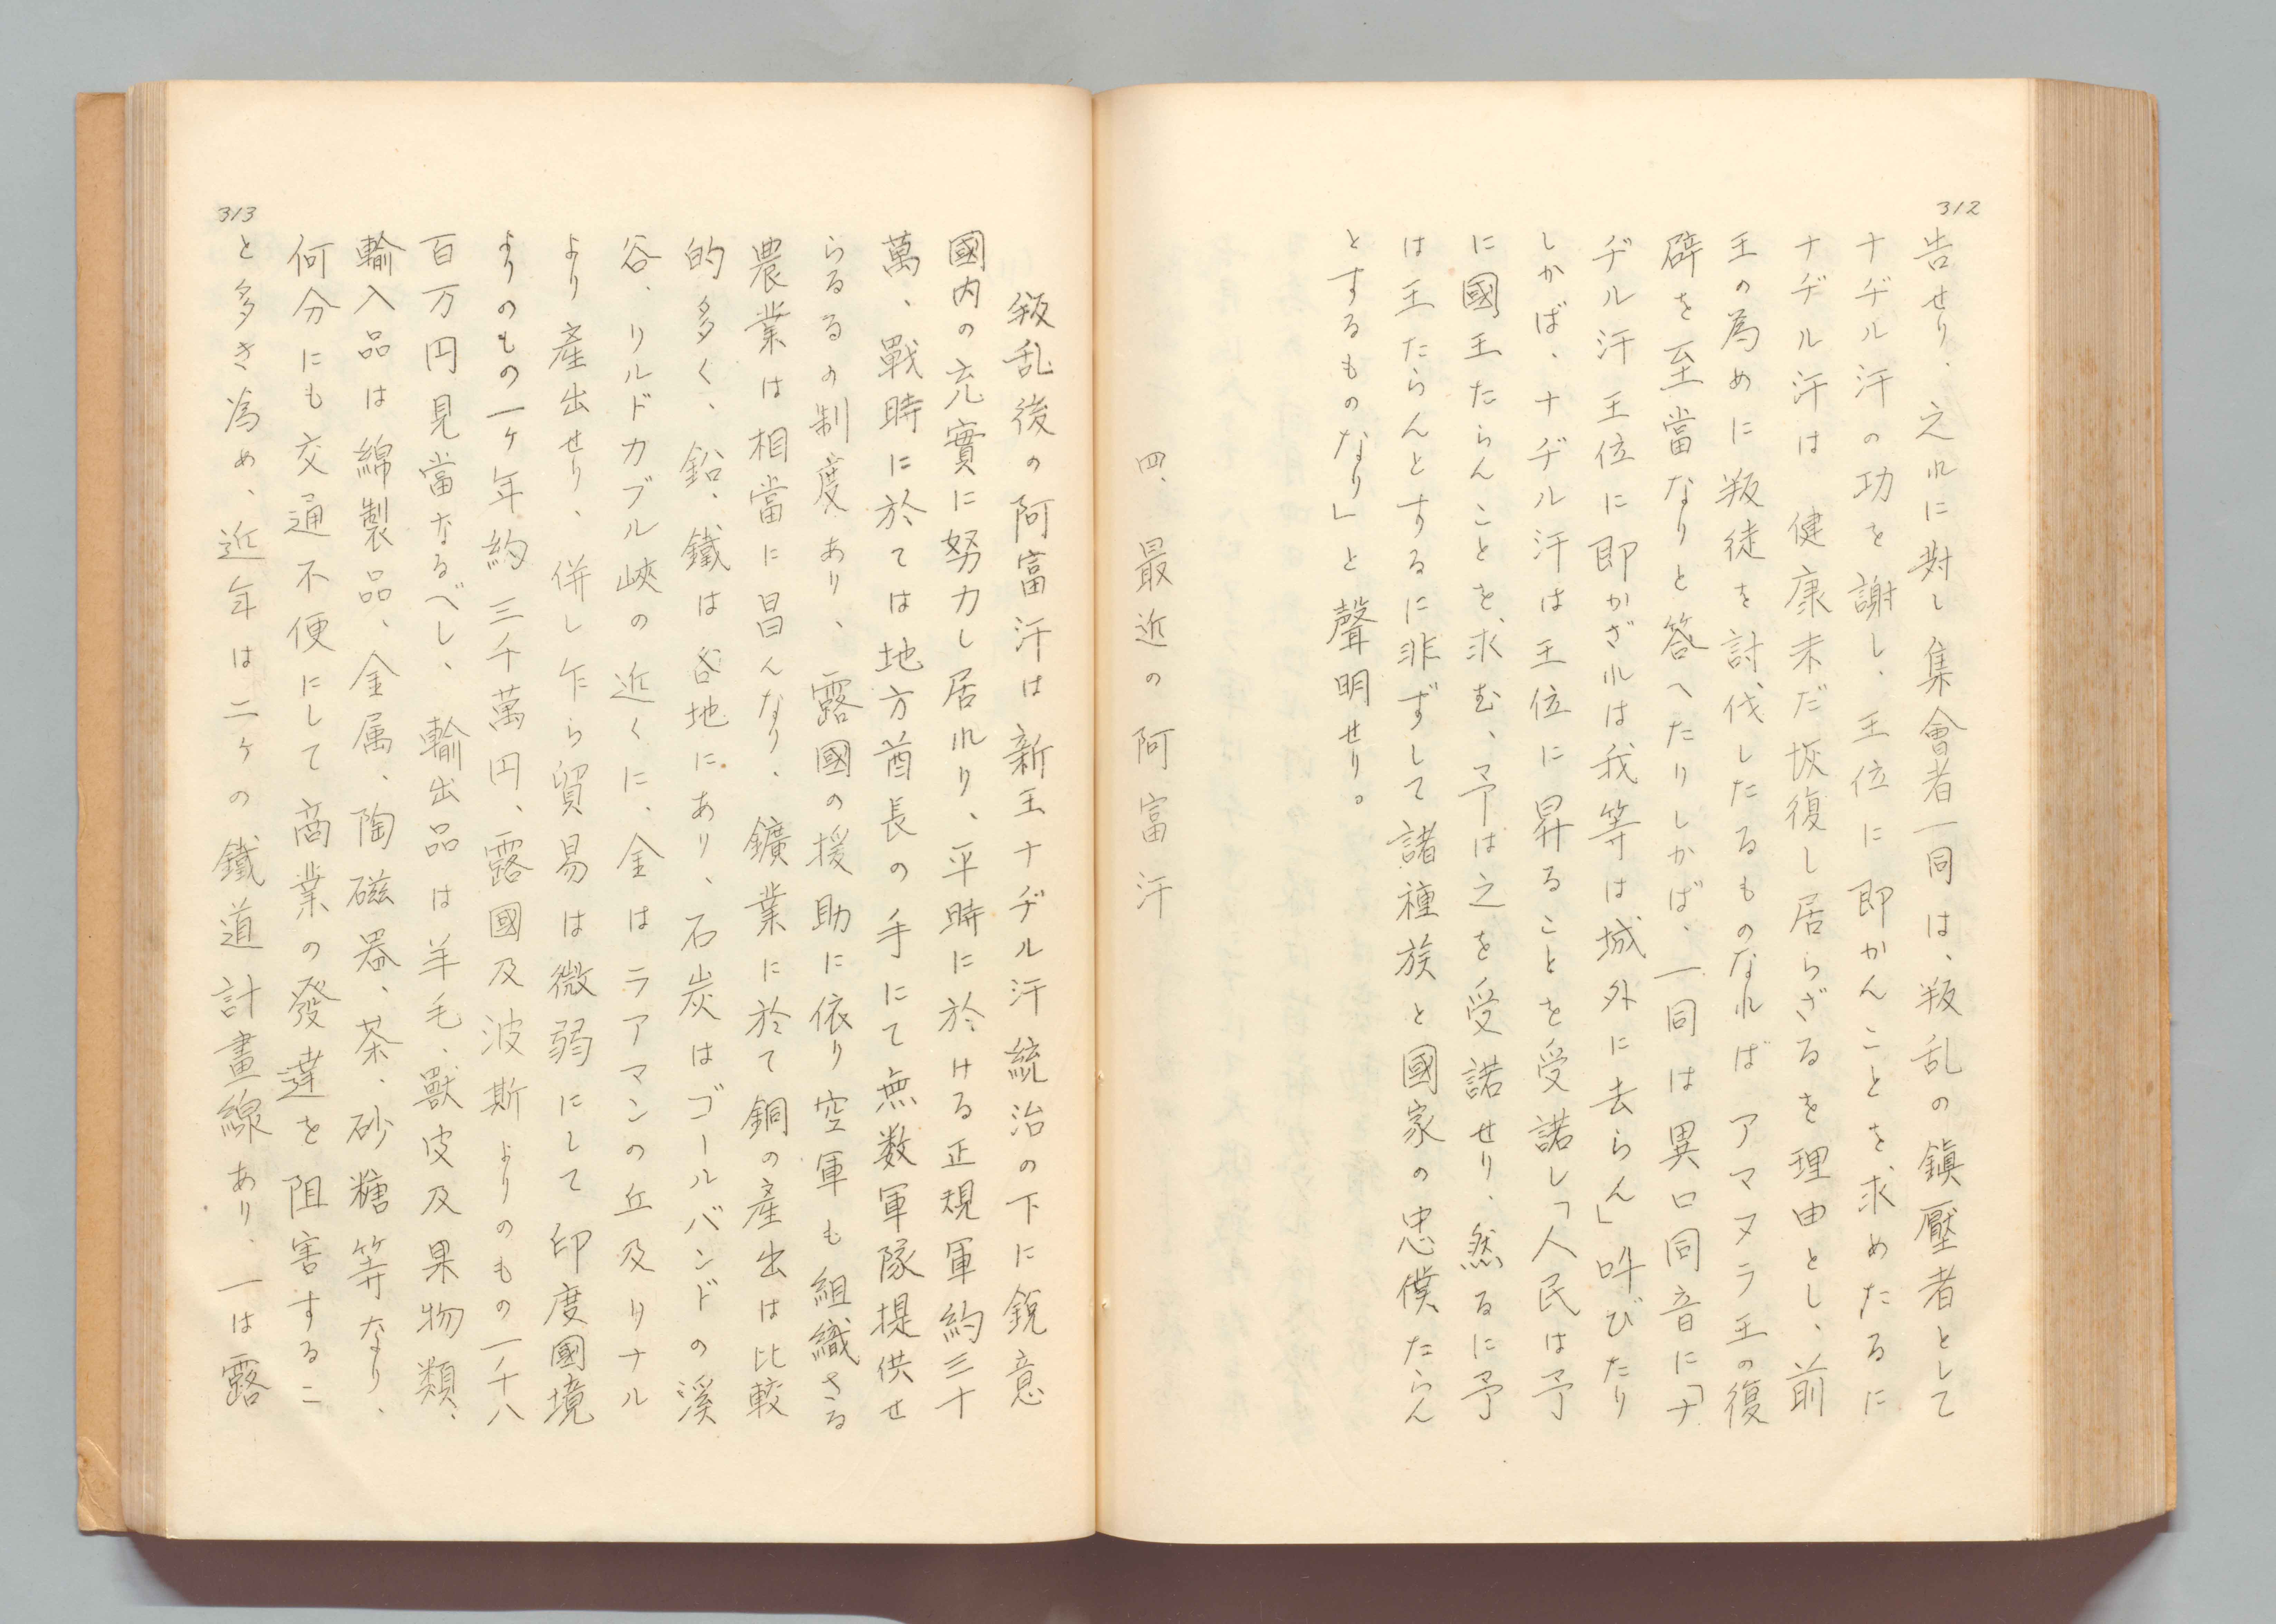 312
告せり、之れに對し集會者一同は、叛乱の鎭壓者として
ナヂル汗の功を謝し、王位に即かんことを求めたるに
ナヂル汗は健康未だ恢復し居らざるを理由とし、前
王の為めに叛徒を討伐したるものなればアマヌラ王の復
辟を至當なりと答へたりしかば、一同は異口同音に「ナ
ヂル汗王位に即かざれは我等は城外に去らん」叫びたり
しかば、ナヂル汗は王位に昇ることを受諾し「人民は予
に國王たらんことを求む、予は之を受諾せり、然るに予
は王たらんとするに非ずして諸種族と國家の忠僕たらん
とするものなり」と聲明せり。
四、最近の阿富汗
叛乱後の阿富汗は新王ナヂル汗統治の下に銳意
國内の充實に努力し居れり、平時に於ける正規軍約三十
萬、戰時に於ては地方酋長の手にて無数軍隊提供せ
らるるの制度あり、露國の援助に依り空軍も組織さる
農業は相當に昌んなり、鑛業に於て銅の産出は比較
的多く、鉛、鐵は各地にあり、石炭はゴールバンドの溪
谷、リルドカブル峽の近くに、金はラアマンの丘及リナル
より産出せり、併し乍ら貿易は微弱にして印度國境
よりのもの一ヶ年約三千萬円、露國及波斯よりのもの一千八
百万円見當なるべし、輸出品は羊毛、獸皮及果物類、
輸入品は綿製品、金属、陶磁器、茶、砂糖等なり、
何分にも交通不便にして商業の發達を阻害するこ
と多き為め、近年は二ヶの鐵道計畫線あり、一は露
313